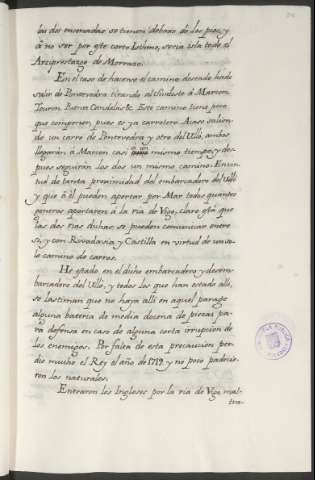 las dos ensenadas se tienen debaxo de los pies, y
à no ser por este corto Isthmo, seria isla todo el
Arciprestazgo de Morrazo.
En el caso de hacerse el camino deseado, hade
salir de Pontevedra tirando al Sudoeste à Marcon
Touron, Puente Candelas &c. Este camino tiene poco
que componer, pues es ya carretero. Acaso salien
do un carro de Pontevedra y otro del Ulló, ambos
llegarán à Marcon casi mismo tiempo, y des
pues seguirán los dos un mismo camino. En vir
tud de tanta proximidad del embarcadero del Ulló
y que à él pueden aportar por Mar todos quantos
generos aportaren à la ria de Vigo, claro está que
las dos rias dichas se pueden comunicar entre
si, y con Rivadavia y Castilla en virtud de un so
lo camino de carros.
He estado en el dicho embarcadero y desem-
barcadero del Ulló, y todos los que han estado allí,
se lastiman que no haya alli en aquel parage
alguna bateria de media docena de piezas pa
ra defensa en caso de alguna corta irrupcion de
los enemigos. Por falta de esta precaucion per-
dio mucho el Rey el año de 1719. y no poco padecie-
ron los naturales.
Entraron los Ingleses por la ria de Vigo, mal-
tra-